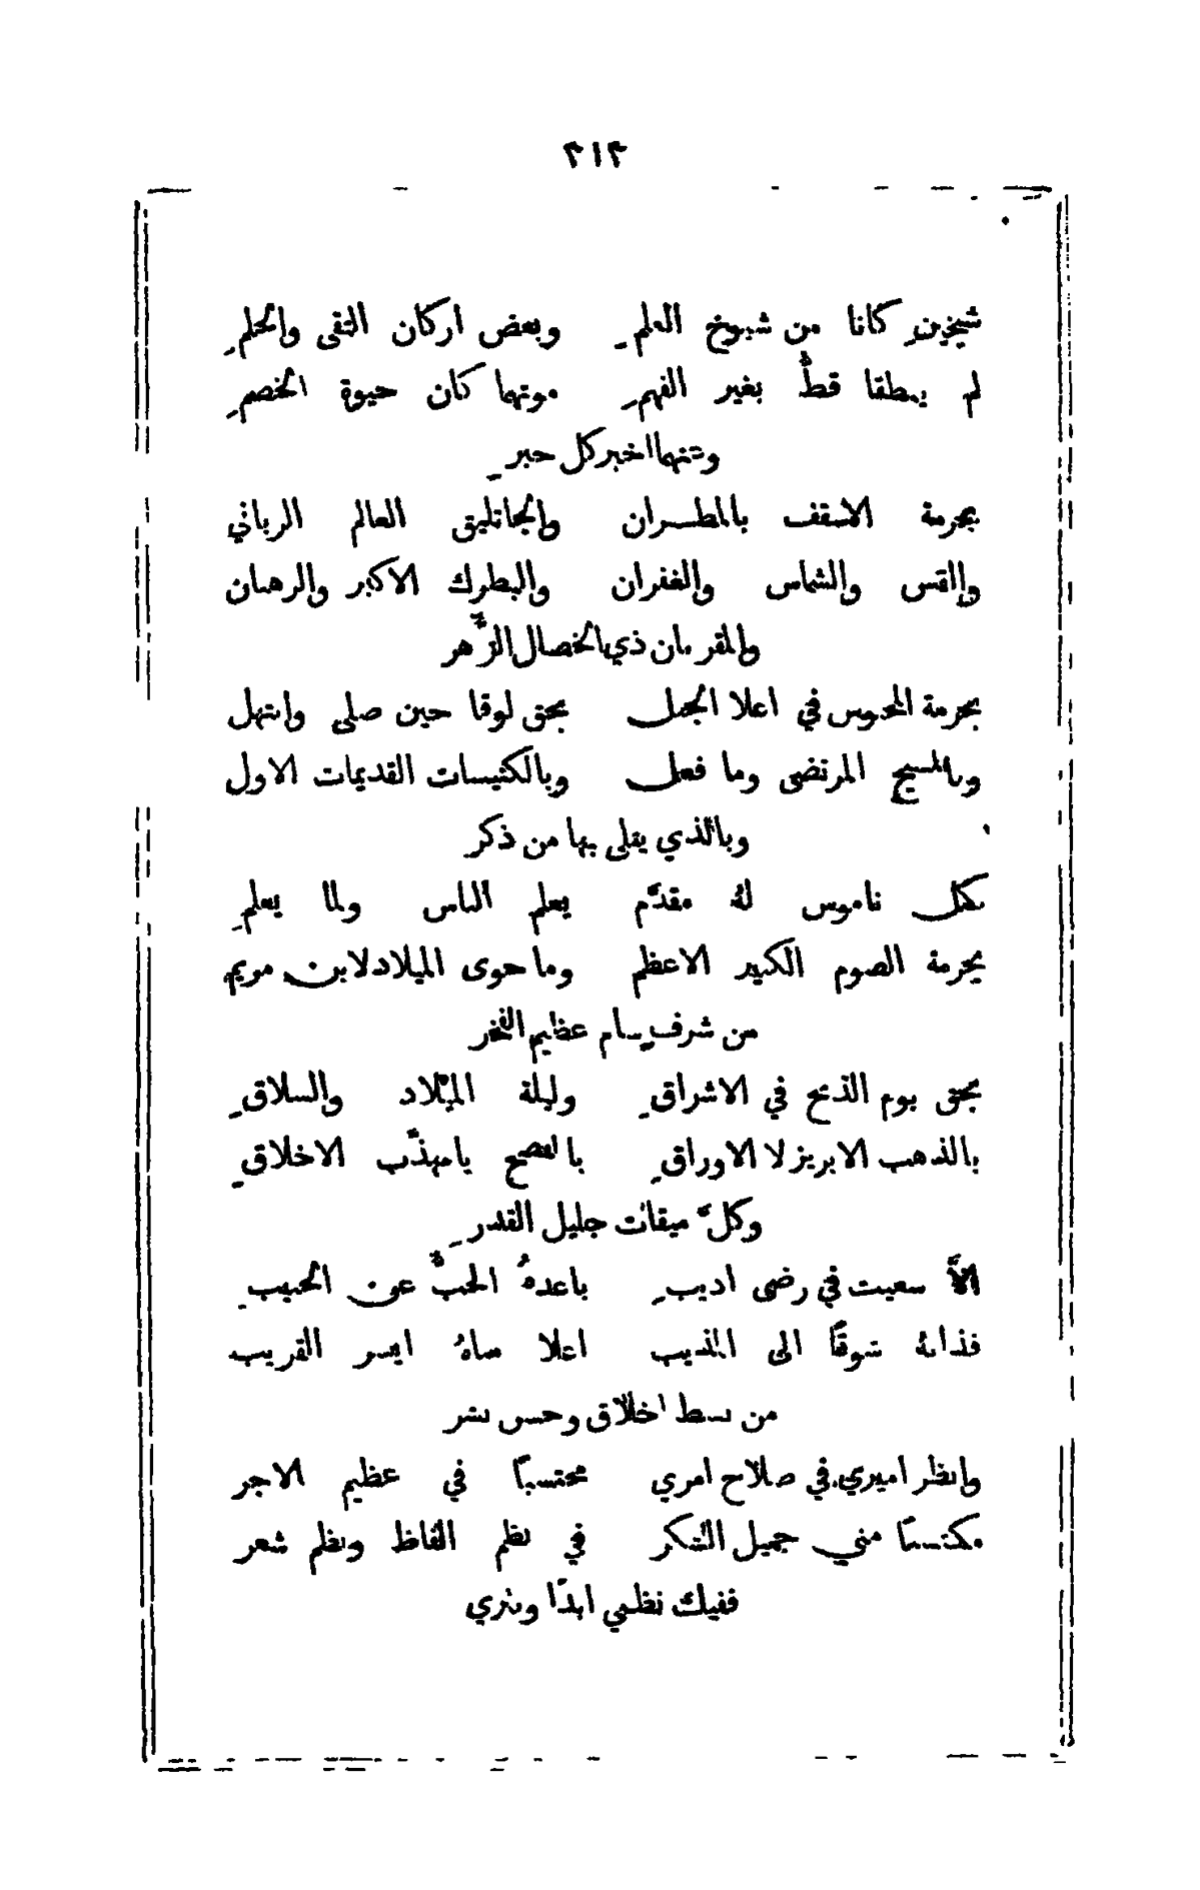 ٣١٣
شيخين كانا من شيوخ العلمِ وبعض اركان التقى والحلمِ
لم ينطقا قطُّ بغير الفهمِ موتهما كان حيوة الخصمِ
وعنهما اخبر كل حبرِ
بحرمة الاسقف بالمطـران والجاثليق العالم الرباني
والقس والشماس والغفران والبطرك الاكبر والرهبان
والمقربان ذي الخصال الزُّهر
بحرمة المحبوس في اعلا الجبل بحق لوقا حين صلى وابتهل
وبالمسيح المرتضى وما فعل وبالكنيسات القديمات الاول
وبالذي يتلى بها من ذكر
بكل ناموس لهُ مقدَّم يعلم الناس ولما يعلمِ
بحرمة الصوم الكبير الاعظم وما حوى الميلاد لابن مريم
من شرفٍ سام عظيم الفخر
بحق يوم الذبح في الاشراقِ وليلة الميلاد والسلاقِ
بالذهب الابريز لا الاوراقِ بالفصح يا مهذَّب الاخلاقِ
وكلّ ميقات جليل القدرِ
الاَّ سعيت في رضى اديبِ باعدهُ الحبُّ عن الحبيبِ
فذابهُ شوقًا الى المذيب اعلا مناهُ ايسر القريب
من بسط اخلاق وحسن بشر
وانظر اميري في صلاح امري محتسبًا في عظيم الاجر
مكتسبًا مني جميل الشكر في نظم الفاظ ونظم شعر
ففيك نظمي ابدًا ونثري